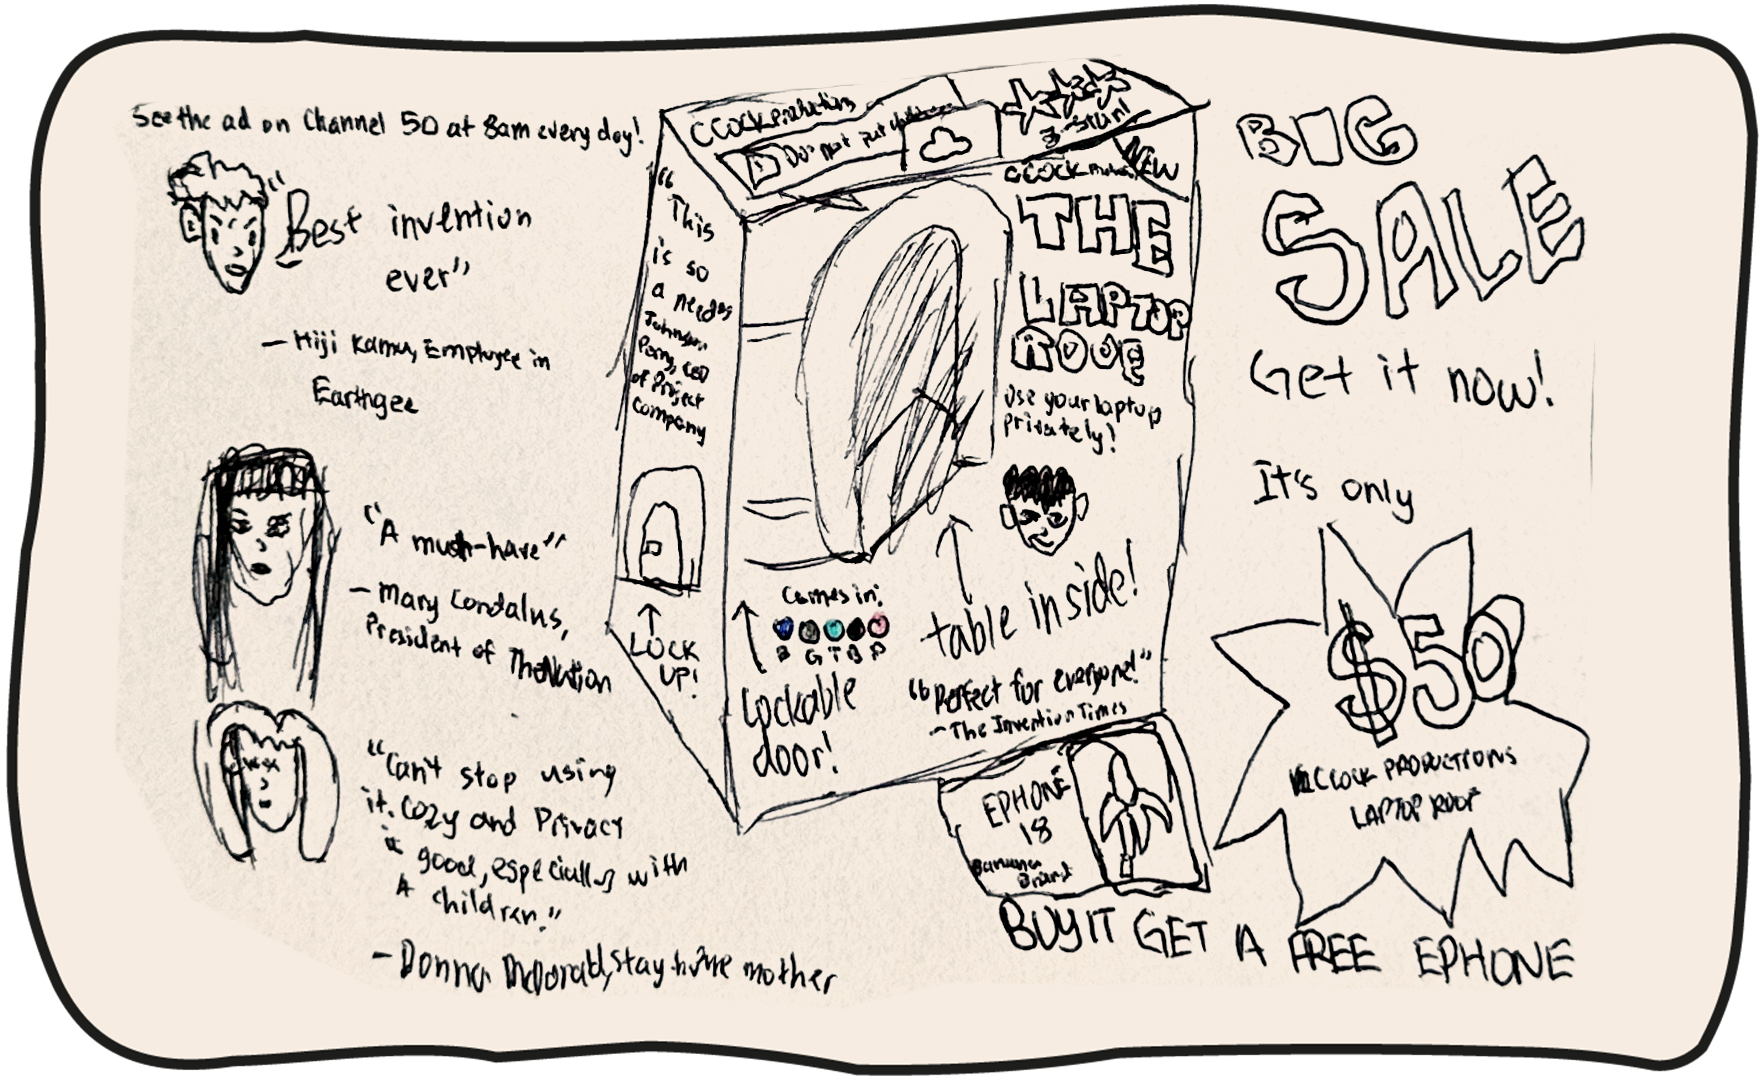 See the ad on Channel 50 at 8am every day!
"Best invention
ever"
- Hiji Kamu, Employee in
Earthgee
"A must-have"
- Mary Condalus,
President of TheNation
"Can't stop using
it. Cozy and Privacy
is good, especially with
4 children."
- Donna McDonald, stay home mother
CCOCK Productions
Do not put
3-star!
NEW
"This
is so
a need"
Johnson
Pong, CEO
of Project
Company
LOCK
UP!
CCOCK
THE
LAPTOP
ROOF
Use your laptop
privately!
table inside!
Comes in:
B G T B P
Lockable
door!
"Perfect for everyone!"
- The Invention Times
EPHONE
18
Banana
Brand
BUY IT GET A FREE EPHONE
BIG
SALE
Get it now!
It's only
$50
PRODUCTIONS
LAPTOP ROOF